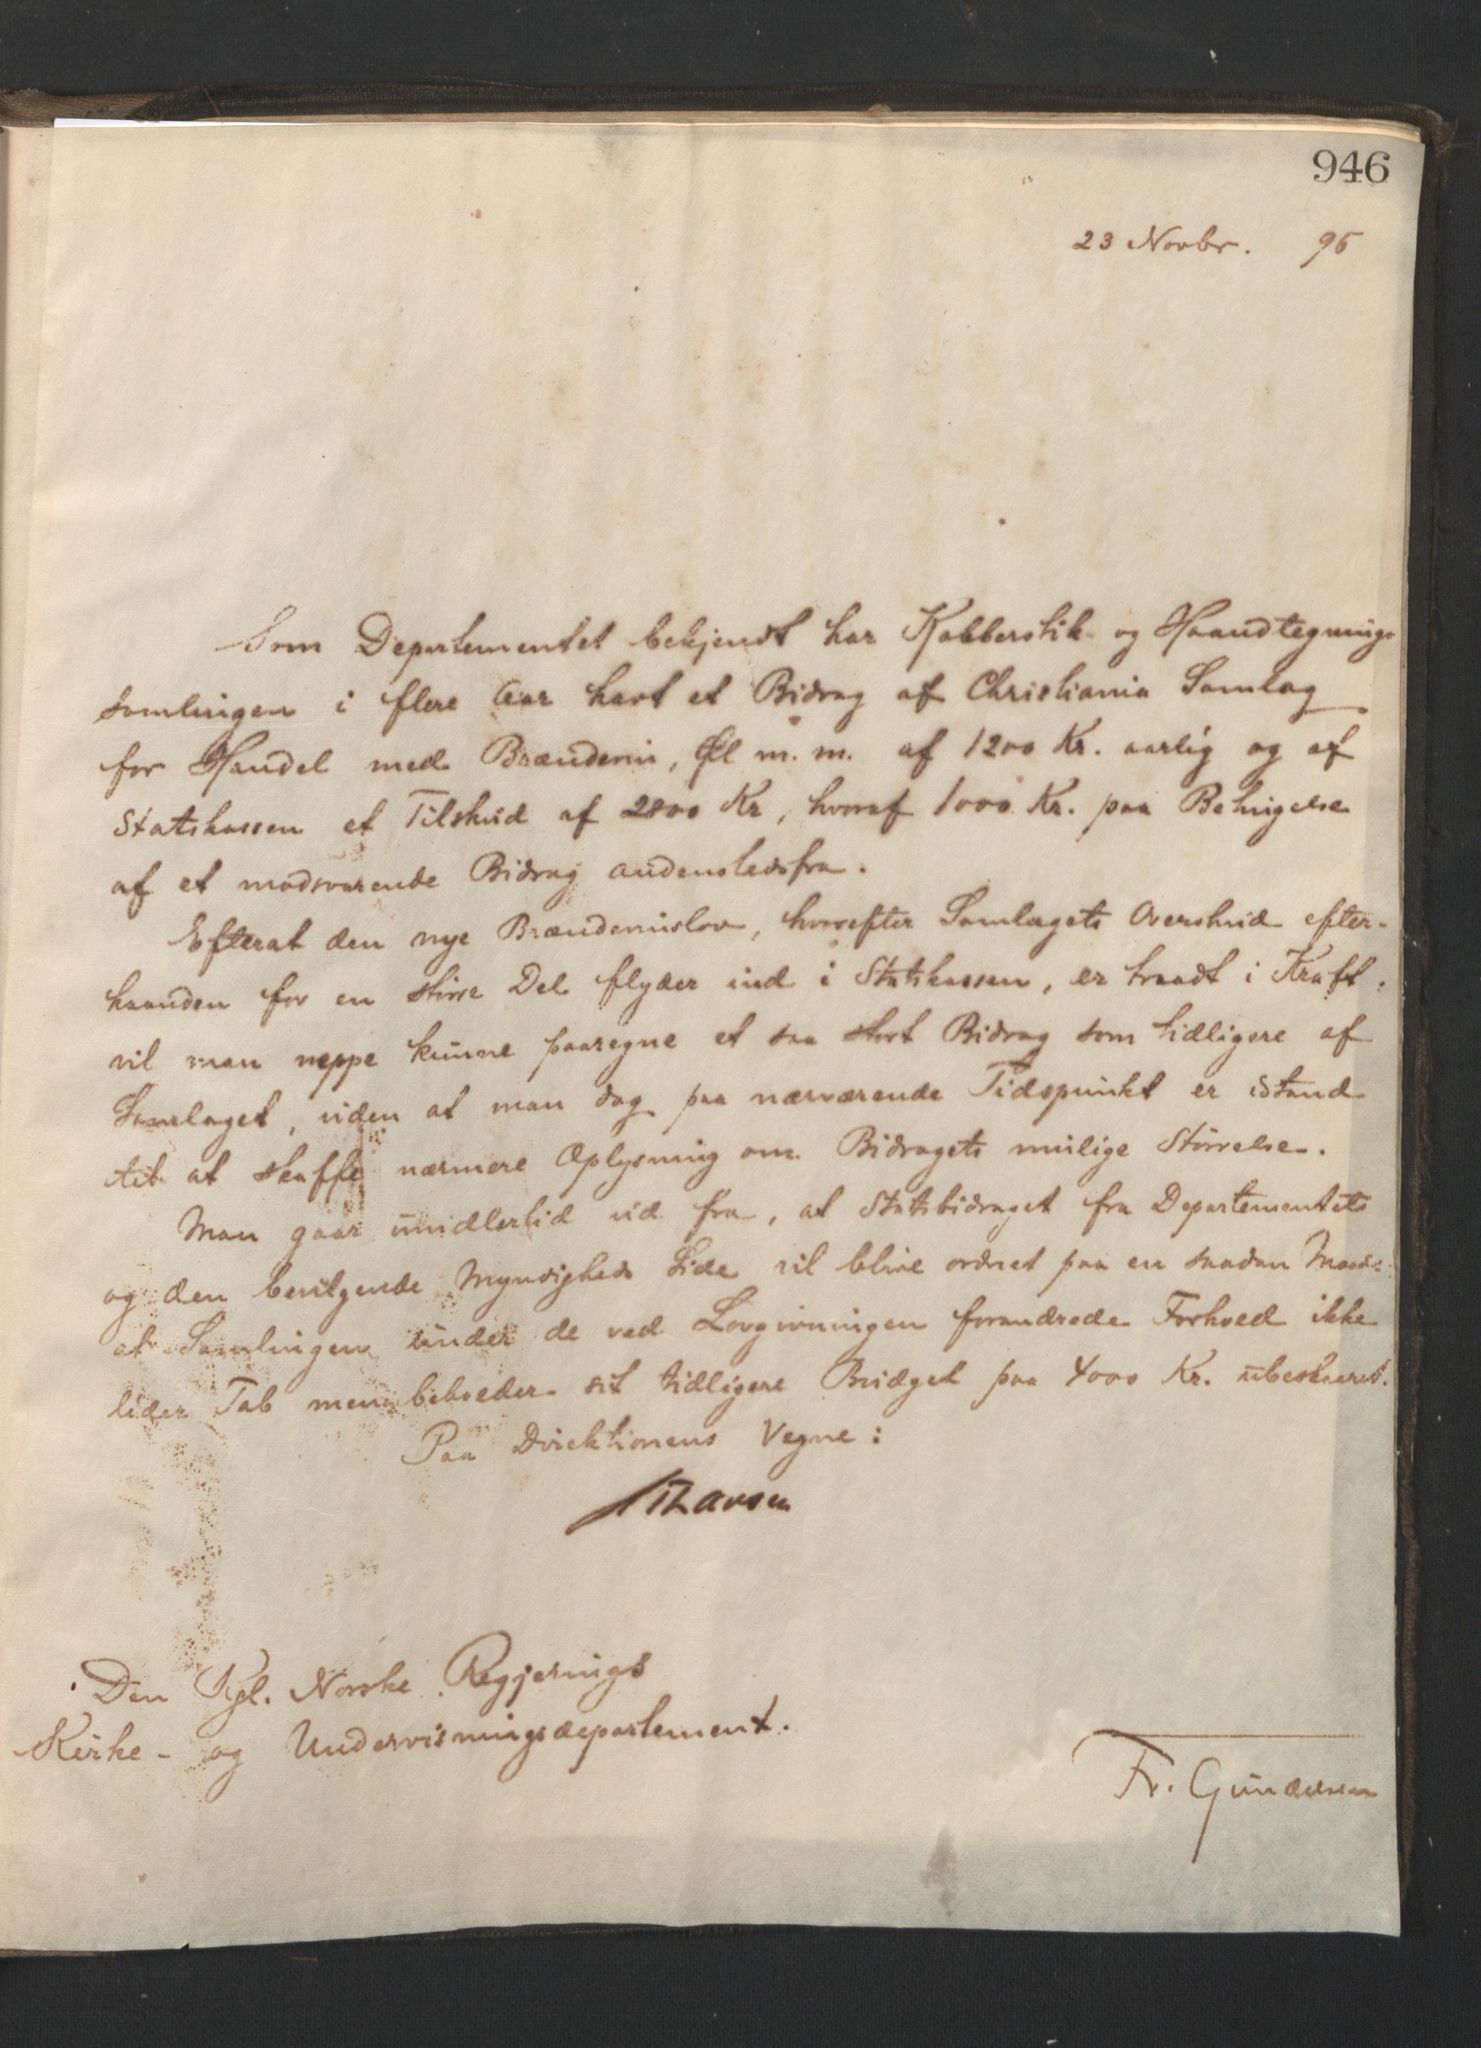 946
23 Novbr. 96
Som Departementet bekjendt har Kobberstik- og Haandtegnings
samlingen i flere Aar havt et Bidrag af Christiania Samlag
for Handel med Brændevin, Øl m. m. af 1200 Kr. aarlig og af
Statskassen et Tilskud af 2800 Kr, hvoraf 1000 Kr. paa Betingelse
af et modsvarende Bidrag andenstedsfra.
Efterat den nye Brændevinslov, hvorefter Samlagets Overskud efter-
haanden for en større Del flyder ind i Statskassen, er traadt i Kraft,
vil man neppe kunne paaregne et saa stort Bidrag som tidligere af
Samlaget, uden at man dog paa nærværende Tidspunkt er istand
til at skaffe nærmere Oplysning om Bidragets mulige Størrelse.
Man gaar imidlertid ud fra, at Statsbidraget fra Departementets
og den bevilgende Myndigheds Side vil blive ordnet paa en saadan Maade
at Samlingen under de ved Lovgivningen forandrede Forhold ikke
lider Tab men beholder sit tidligere Budget paa 4000 Kr. ubeskaaret.
Paa Direktionens Vegne:
Larsen
Den Kgl. Norske Regjerings
Kirke- og Undervisningsdepartement.
Fr. Gundersen